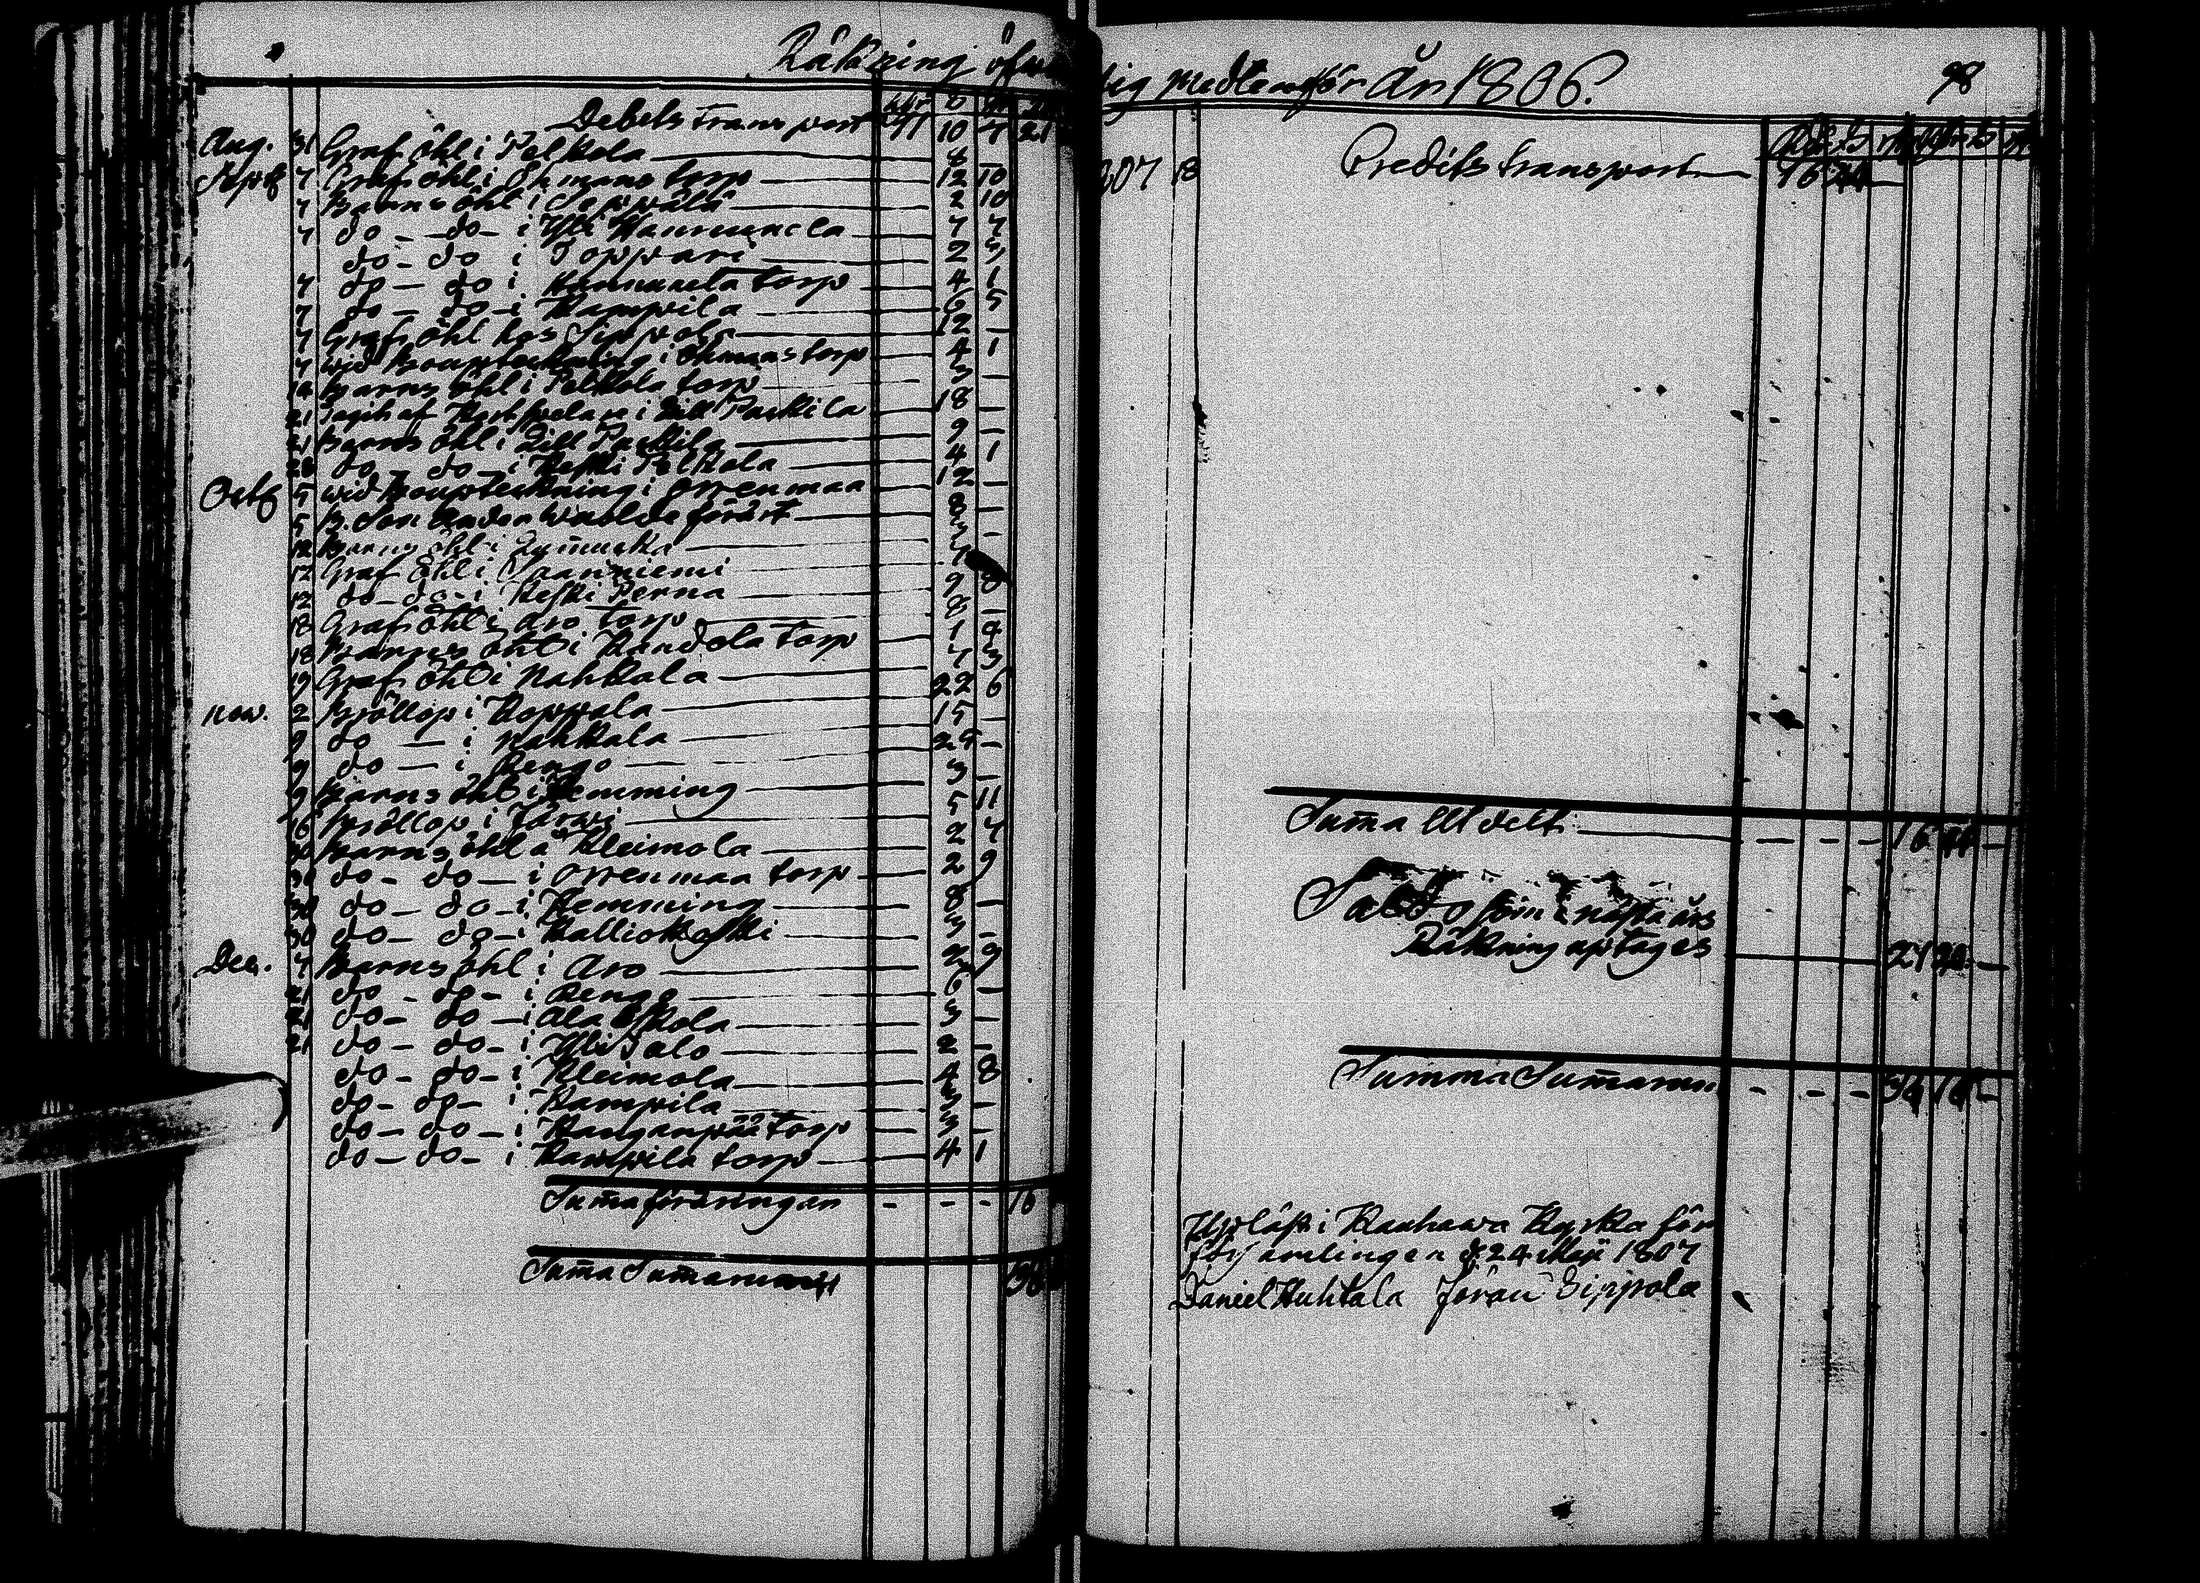 Räkning öfwer
Debets Transport 41 10 4 21
Aug. 31 Graf öhl i Pelkola — 8
Sept 7 Graf öhl i Öhmans torp — 12 10
7 Barns öhl i Seppälä — 2 10
7 do — do — i Yli Hannuncla — 7 7
do — do i Toppari — 2 3
7 do — do i Hannunela torp — 4 1
7 do — do — i Kampila — 6 5
7 Graf öhl hos Sippola — 12 —
7 wid Bouptekning i Öhmans torp — 4 1
14 Barns öhl i Pelkola torp — 3 —
21 i Lill Packila — 18 —
21 Barns öhl i Lill Packila — 9 —
28 do — do — i Keski Pelkola — 4 1
Octb 5 wid Bouptekning i Orrenmaa — 12 —
5 B. Son — 8 —
12 Barns öhl i — 3 —
12 Graf öhl i Saarniemi — 7
12 do — do — i Keski Perna — 9 8
18 Graf öhl i Aro torp — 8 —
18 Barns öhl i Kandola torp — 1 4
19 Graf öhl i Nahkala — 7 3
Nov. 2 Bröllop i Koppola — 22 6
9 do — i Nahkala — 15 —
9 do — i Rengo — 24 —
9 Barns öhl i Hemming — 3 —
16 Bröllop i Järwi — 5 11
30 Barns öhl å Kleimola — 2 4
30 do — do — i Orrenmaa torp — 2 9
30 do — do — i Hemming — 8 —
30 do — do — i Kalliokoski — 3 —
Dec. 7 Barns öhl i Aro — 2 9
21 do — do — i Rengo — 6 —
21 do — do — i Ala Ekola — 3 —
21 do — do — i Yli Salo — 2 —
do — do — i Kleimola — 4 8
do — do — i Kampila — 3 —
do — do — i Kanganpää torp — 3 —
do — do — i Kampila torp — 4 1
Suma föräringen — — — 16
Suma Sumarum
tig Medlen för År 1806. 98
807 18 Credits transport — 16
Suma Utdelt — — — — 16
Saldo som i nästa års
Räkning uptages —
Summa Sumarum — — — —
Upläst i Kauhawa Kyrka för
församlingen d 24 Maji 1807
Daniel Huhtala Jöran Sippola